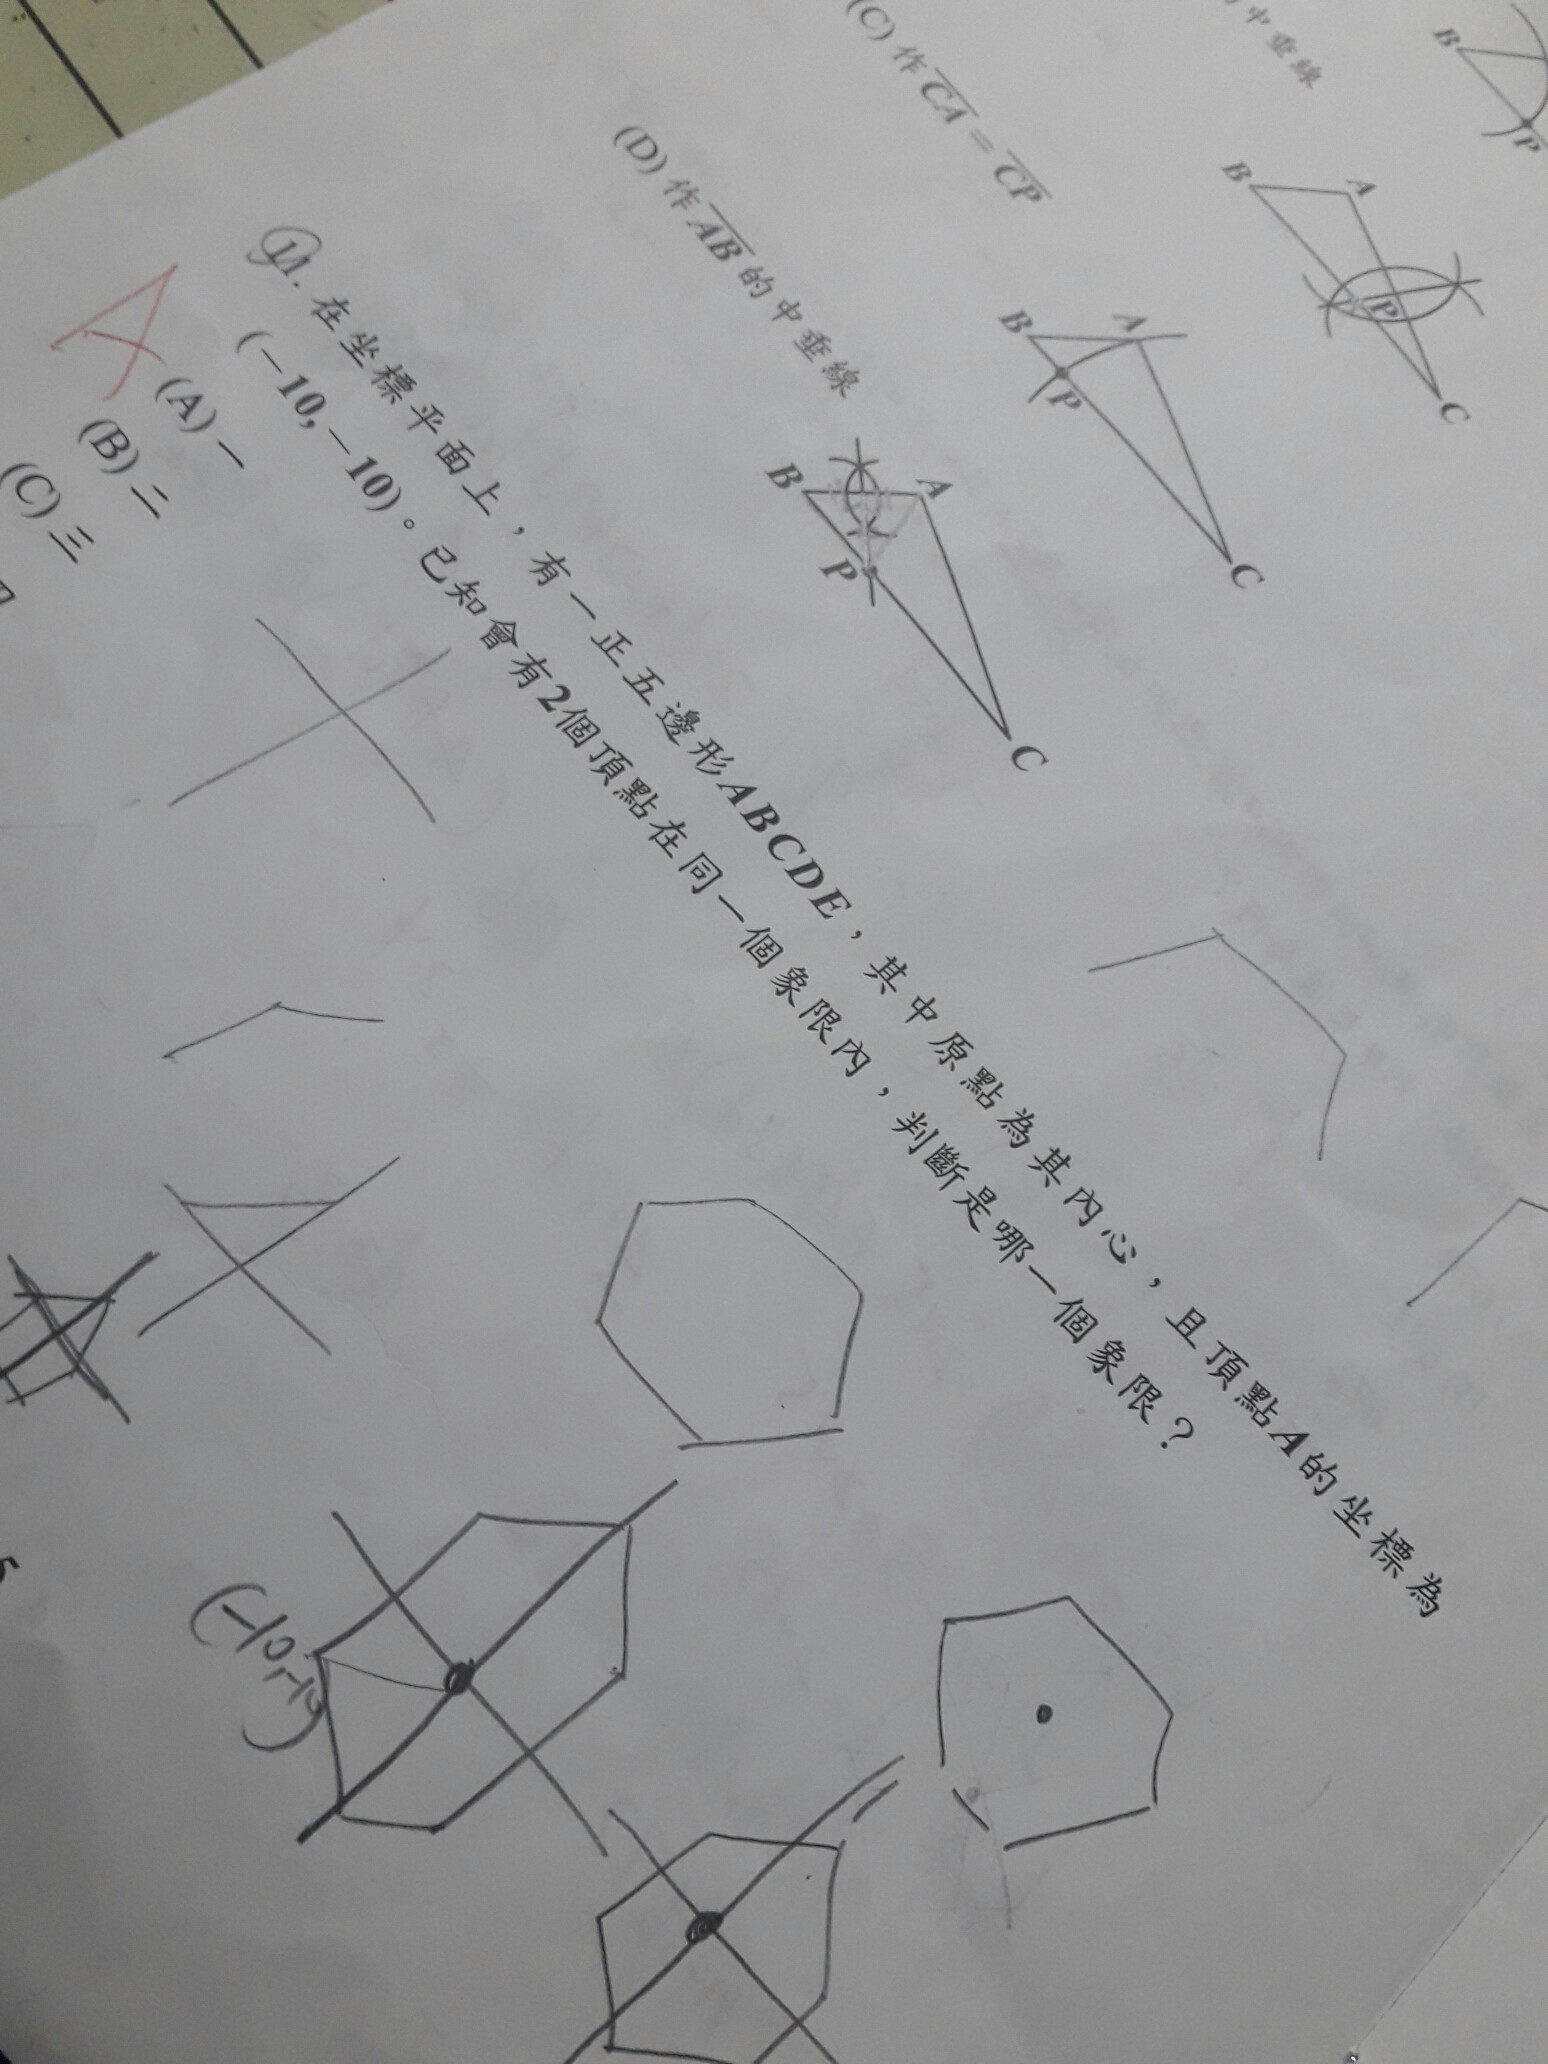 的中垂線
B
P
(C) 作CA=CP
B
A
P
C
(D) 作AB的中垂線
B
A
P
C
B
A
P
C
11. 在坐標平面上，有一正五邊形ABCDE，其中原點為其內心，且頂點A的坐標為
(－10,－10)。已知會有2個頂點在同一個象限內，判斷是哪一個象限？
A
(A) 一
(B) 二
(C) 三
(-10,-10)
5